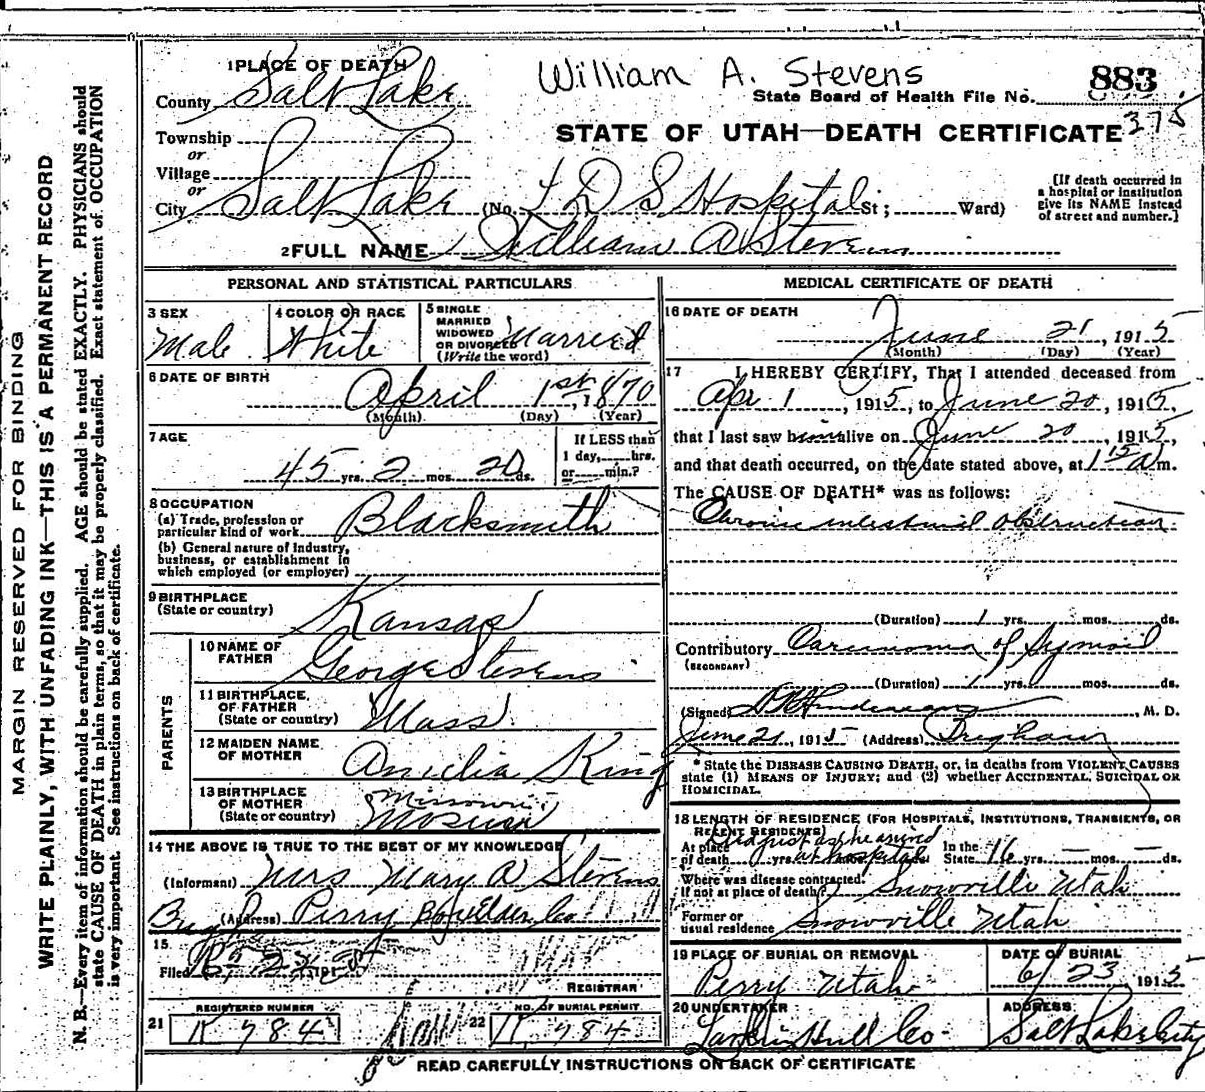 William A. Stevens
883
State Board of Health File No.
375
STATE OF UTAH—DEATH CERTIFICATE
1 PLACE OF DEATH
County Salt Lake
Township
or
Village
or
City Salt Lake (No. L D S Hospital St; Ward)
[If death occurred in a hospital or institution give its NAME instead of street and number.]
2 FULL NAME William A Stevens
PERSONAL AND STATISTICAL PARTICULARS
3 SEX
Male
4 COLOR OR RACE
White
5 SINGLE MARRIED WIDOWED OR DIVORCED (Write the word)
Married
6 DATE OF BIRTH
April 1st, 1870
(Month) (Day) (Year)
7 AGE
45 yrs. 2 mos. 20 ds.
If LESS than 1 day, hrs. or min.?
8 OCCUPATION
(a) Trade, profession or particular kind of work Blacksmith
(b) General nature of industry, business, or establishment in which employed (or employer)
9 BIRTHPLACE (State or country)
Kansas
PARENTS
10 NAME OF FATHER
George Stevens
11 BIRTHPLACE OF FATHER (State or country)
Mass
12 MAIDEN NAME OF MOTHER
Amelia King
13 BIRTHPLACE OF MOTHER (State or country)
Missouri
14 THE ABOVE IS TRUE TO THE BEST OF MY KNOWLEDGE
(Informant) Mrs Mary A Stevens
(Address) Perry Box Elder Co
15
Filed
REGISTRAR
REGISTERED NUMBER
21 K 784
NO. OF BURIAL PERMIT
22 K 784
MEDICAL CERTIFICATE OF DEATH
16 DATE OF DEATH
June 21, 1915
(Month) (Day) (Year)
17 I HEREBY CERTIFY, That I attended deceased from
Apr 1, 1915, to June 20, 1915,
that I last saw him alive on June 20, 1915,
and that death occurred, on the date stated above, at 1 15 A m.
The CAUSE OF DEATH* was as follows:
Chronic intestinal obstruction
(Duration) 1 yrs. mos. ds.
Contributory Carcinoma of Sygmoid
(SECONDARY)
(Duration) 1 yrs. mos. ds.
(Signed) M. D.
June 21, 1915 (Address) Brigham
* State the DISEASE CAUSING DEATH, or, in deaths from VIOLENT CAUSES state (1) MEANS OF INJURY; and (2) whether ACCIDENTAL, SUICIDAL OR HOMICIDAL.
18 LENGTH OF RESIDENCE (FOR HOSPITALS, INSTITUTIONS, TRANSIENTS, OR RECENT RESIDENTS)
Died just as he arrived
At place of death yrs. at hospital In the State 16 yrs. — mos. — ds.
Where was disease contracted, if not at place of death? Snowville Utah
Former or usual residence Snowville Utah
19 PLACE OF BURIAL OR REMOVAL
Perry Utah
DATE OF BURIAL
6/23 1915
20 UNDERTAKER
Larkin Hull Co
ADDRESS
Salt Lake City
READ CAREFULLY INSTRUCTIONS ON BACK OF CERTIFICATE
MARGIN RESERVED FOR BINDING
WRITE PLAINLY, WITH UNFADING INK—THIS IS A PERMANENT RECORD
N. B.—Every item of information should be carefully supplied. AGE should be stated EXACTLY. PHYSICIANS should
state CAUSE OF DEATH in plain terms, so that it may be properly classified. Exact statement of OCCUPATION
is very important. See instructions on back of certificate.